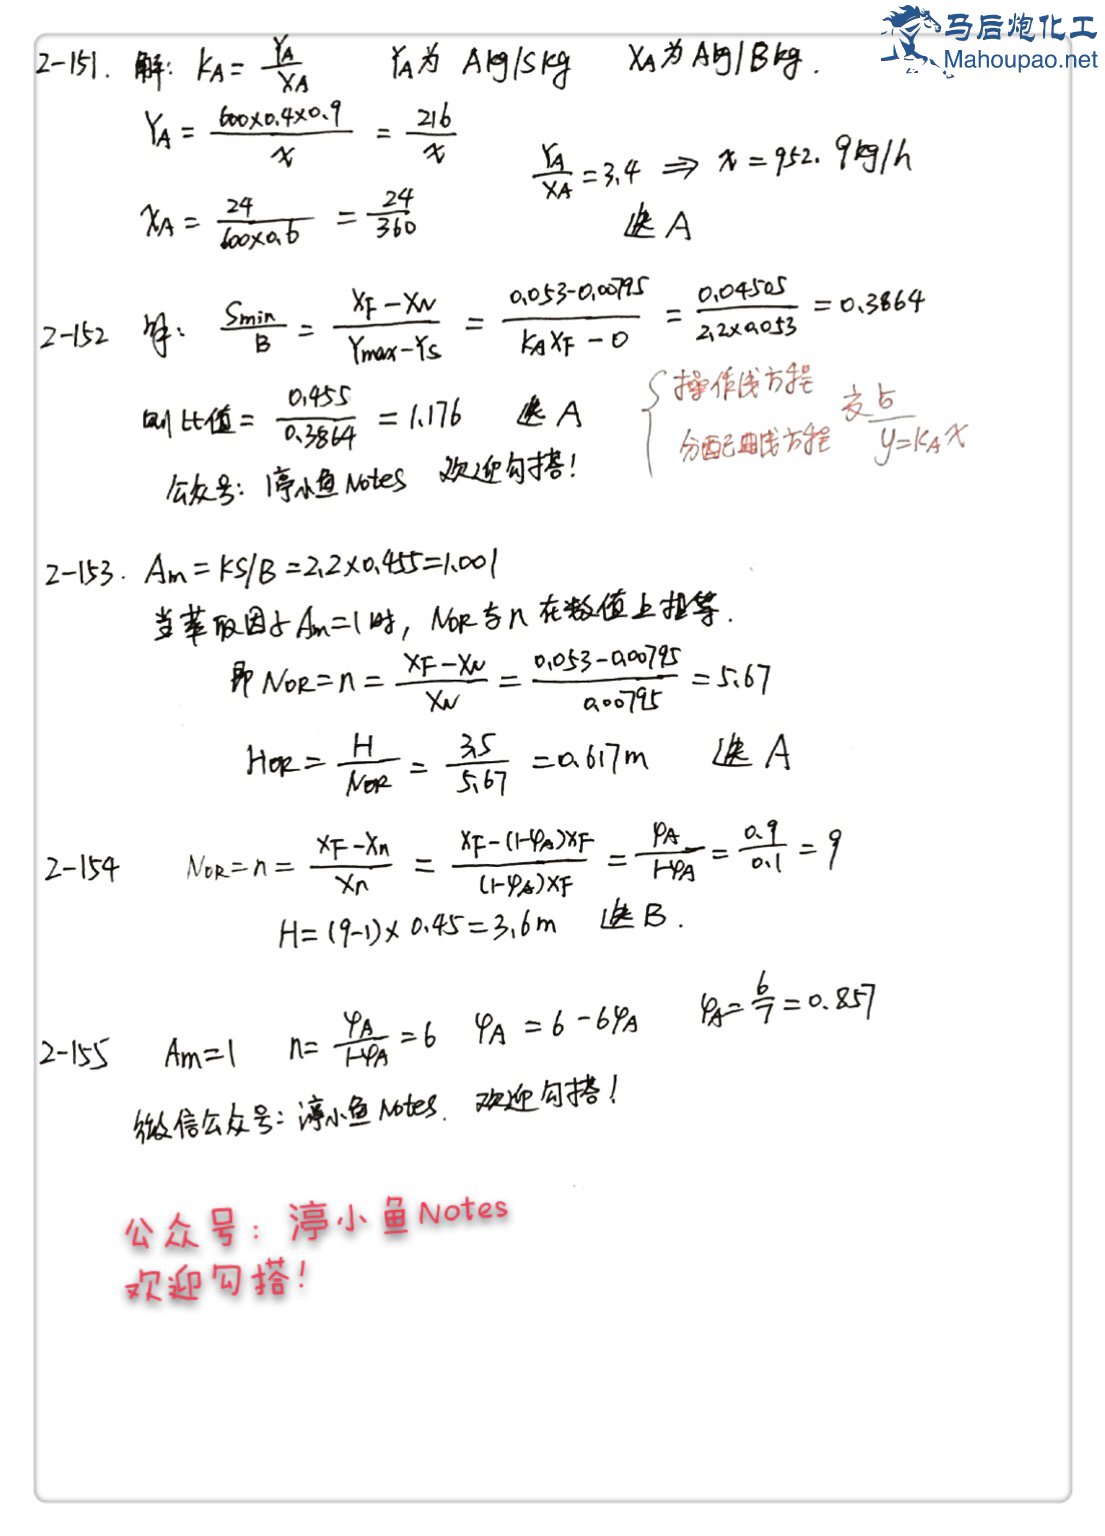 马后炮化工
Mahoupao.net
2-151. 解: KA = YA/XA YA为 Akg/Skg XA为 Akg/Bkg.
YA = 600×0.4×0.9/x = 216/x
YA/XA = 3.4 ⇒ x = 952.9kg/h
XA = 24/600×0.6 = 24/360
选 A
2-152 解: Smin/B = XF-XN/Ymax-YS = 0.053-0.00795/KAXF-0 = 0.04505/2.2×0.053 = 0.3864
则比值 = 0.455/0.3864 = 1.176 选 A
{操作线方程
分配曲线方程 交点 y=KAx
公众号: 渟小鱼Notes 欢迎勾搭!
2-153. Am = KS/B = 2.2×0.455=1.001
当萃取因子Am=1时, NOR与n在数值上相等.
即 NOR=n = XF-XN/XN = 0.053-0.00795/0.00795 = 5.67
HOR = H/NOR = 3.5/5.67 = 0.617m 选 A
2-154 NOR=n = XF-Xn/Xn = XF-(1-φA)XF/(1-φA)XF = φA/1-φA = 0.9/0.1 = 9
H = (9-1)×0.45=3.6m 选B.
2-155 Am=1 n= φA/1-φA = 6 φA = 6-6φA φA= 6/7 = 0.857
微信公众号: 渟小鱼Notes. 欢迎勾搭!
公众号: 渟小鱼Notes
欢迎勾搭!